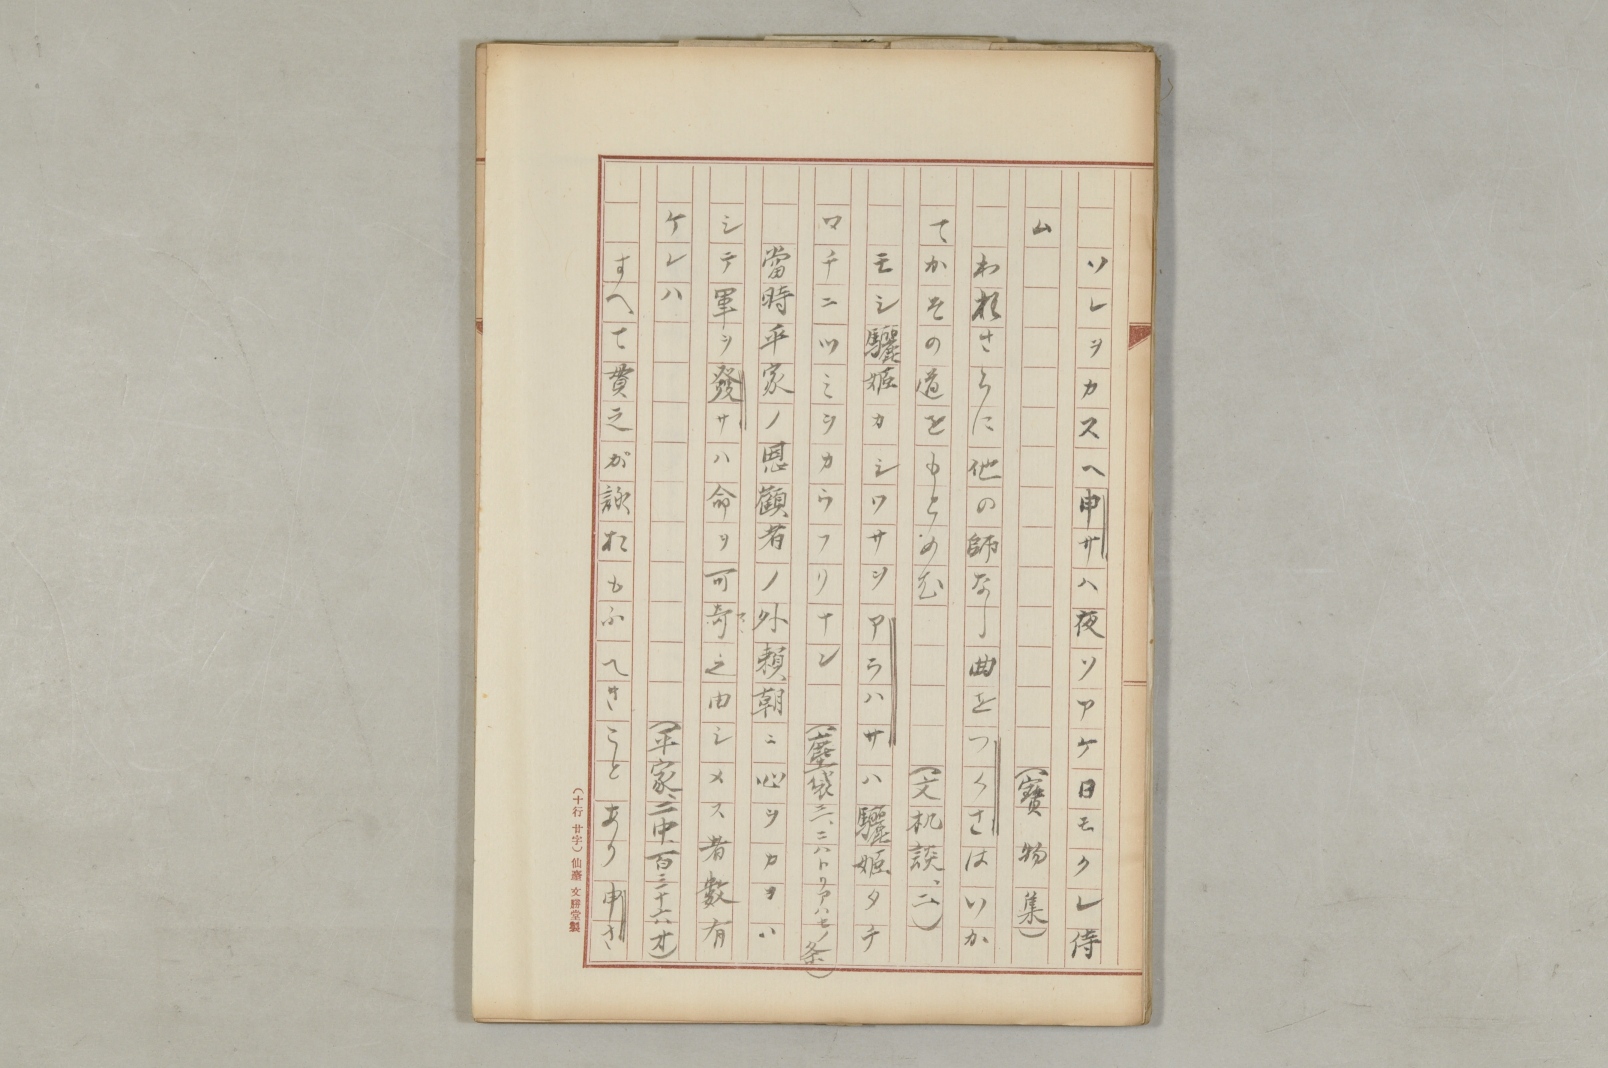 ソレヲカスヘ申サハ夜ソアケ日モクレ侍
ム（寶物集）
わ於さらに他の師なし曲をつくさはいか
てかその道をもとめむ（文机談、二）
モシ驪姫カシワサヲアラハサハ驪姫タチ
マチニツミヲカウフリナン（塵袋三、ニハトリアハセノ条）
當時平家ノ恩顧者ノ外頼朝ニ心ヲカヨハ
シテ軍ヲ發サハ命ヲ可奇之由シメス者數有
ケレハ（平家、二中、百三十六オ）
すへて貫之が詠おもふへきことあり申さ
（十行 廿字）仙臺 文勝堂製